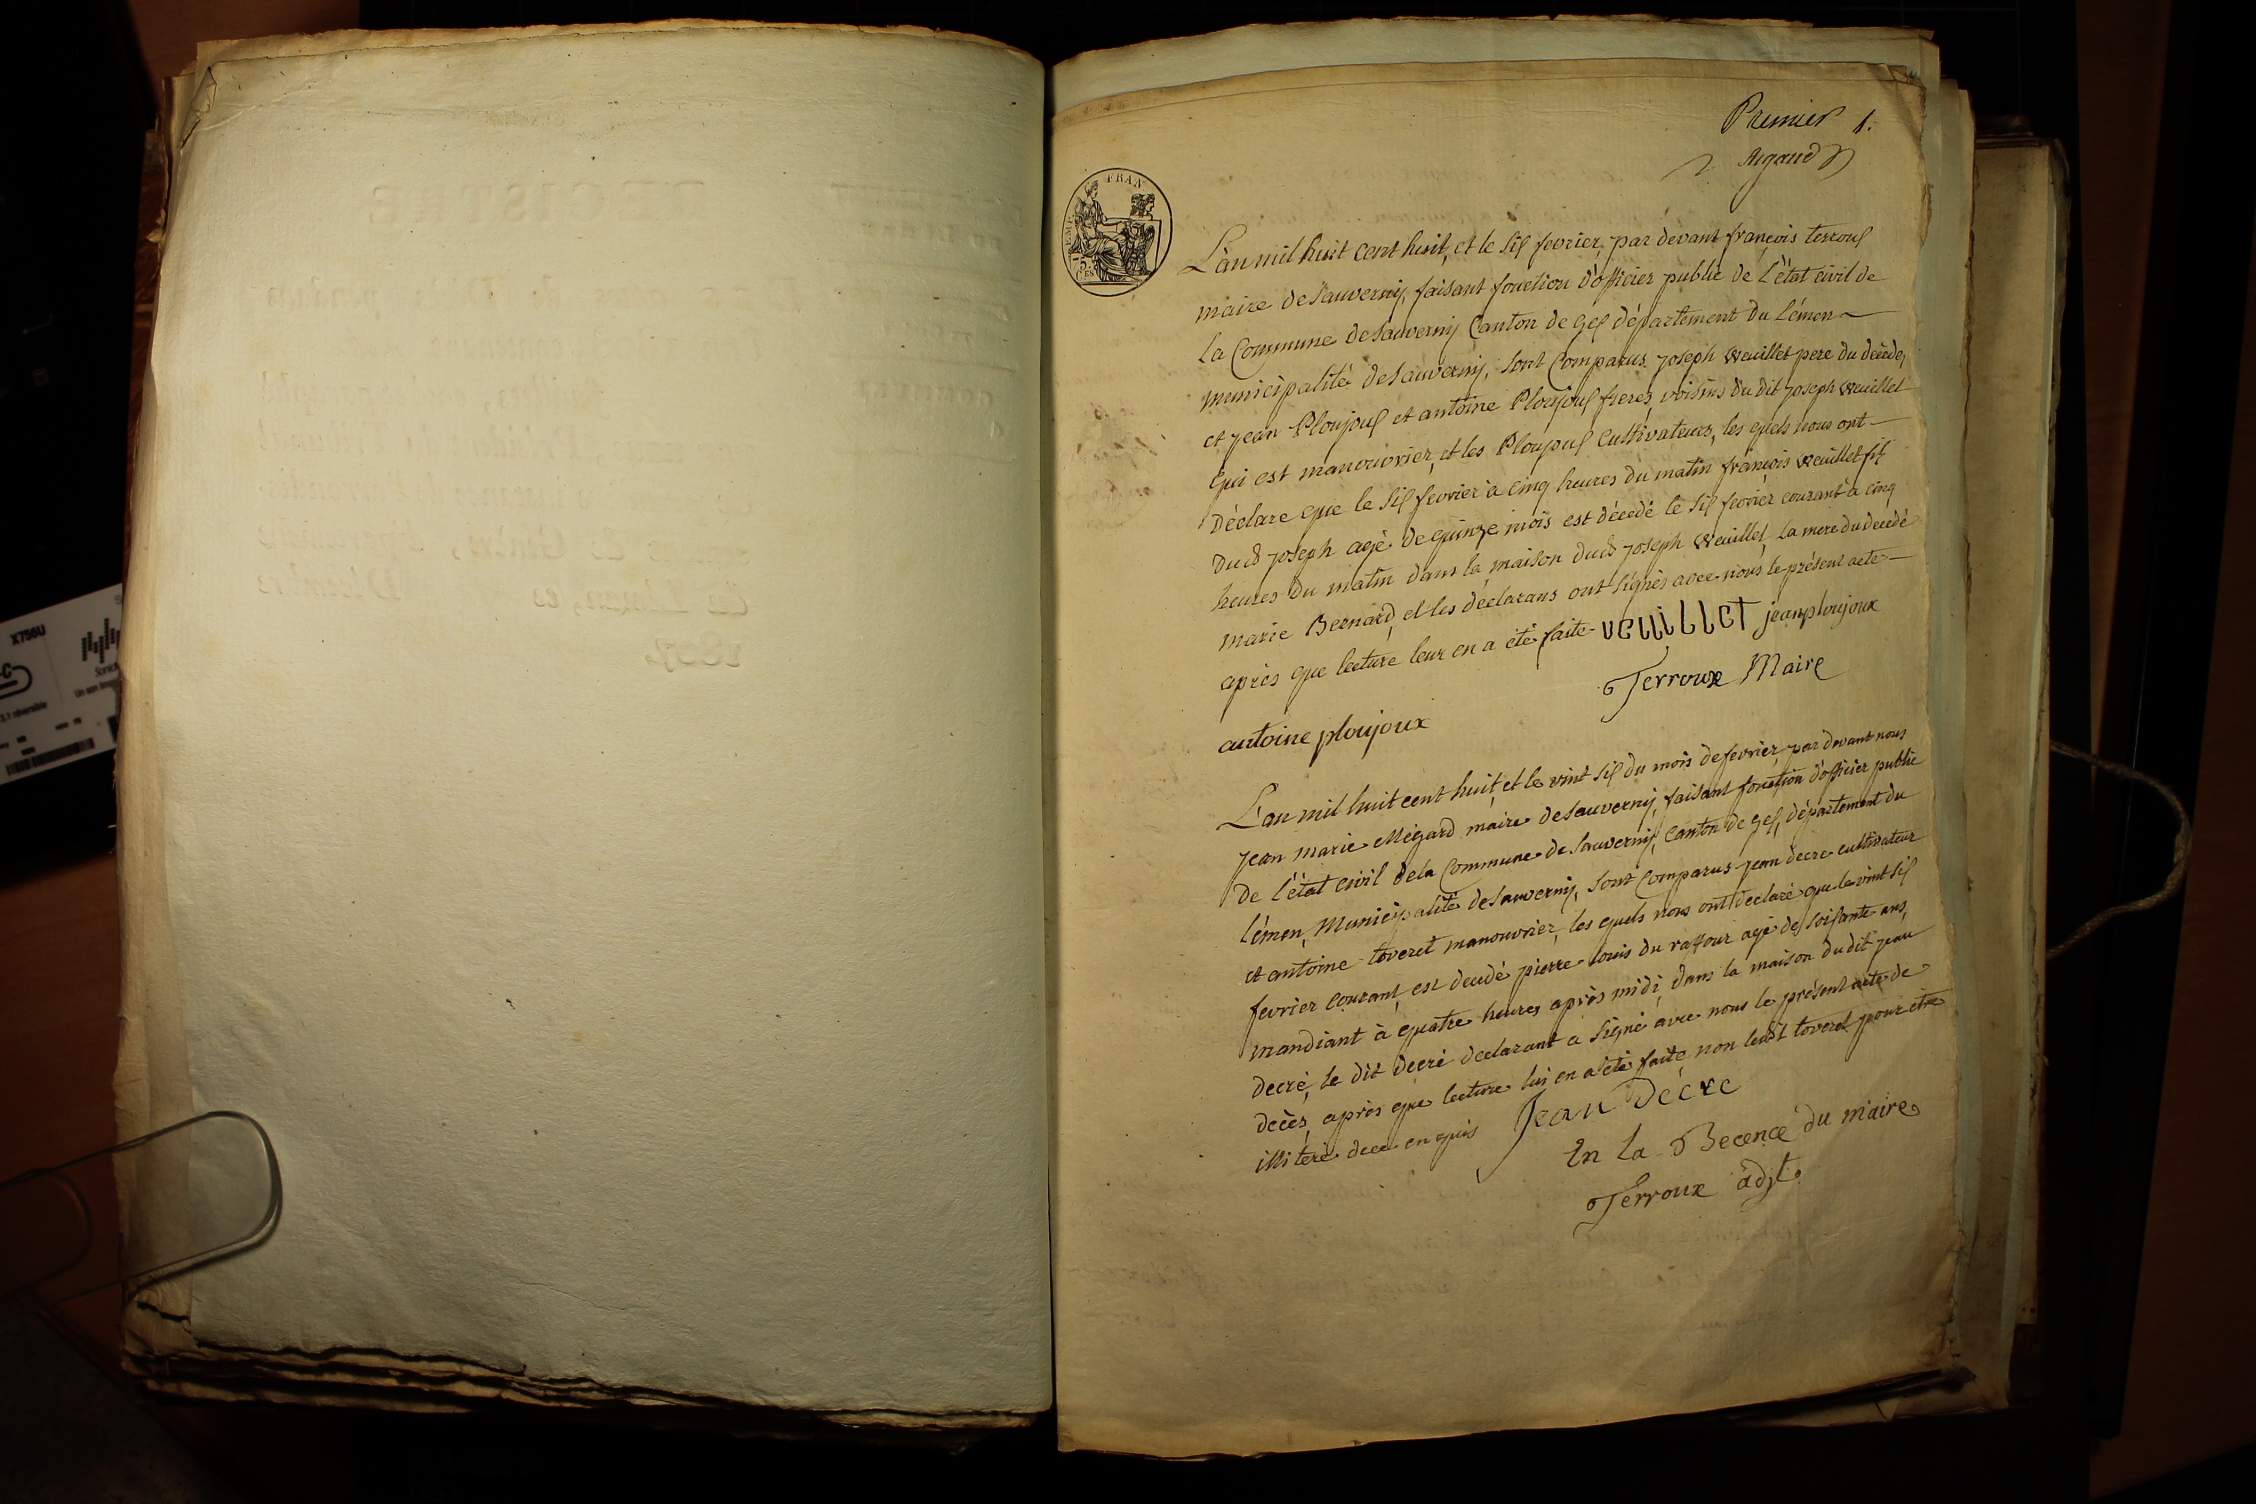 Premier 1.
Rigaud
FRAN
L'an mil huit cent huit, et le six fevrier, par devant françois terroux
maire de Sauverny, faisant fonction d'officier public de l'état civil de
la Commune de Sauverny Canton de Gex département du Léman
municipalité de Sauverny, sont Comparus joseph Weuillet pere du décédé,
et jean Ploujoux et antoine Ploujoux freres, voisins du dit joseph Weuillet
qui est manouvrier, et les Ploujoux Cultivateurs, les quels nous ont
Déclare que le six fevrier à cinq heures du matin françois Weuillet fils
dud joseph agé de quinze mois est décedé le six fevrier courant à cinq
heures du matin dans la maison dud joseph Weuillet, la mere du decédé
marie Bernard, et les déclarans ont signés avec nous le présent acte
après que lecture leur en a été faite veuillet jean ploujoux
Terroux Maire
antoine ploujoux
L'an mil huit cent huit, et le vint six du mois de fevrier, par devant nous
jean marie Mégard maire de Sauverny, faisant fonction d'officier public
de l'état civil de la Commune de Sauverny, Canton de Gex, département du
Léman, Municipalité de Sauverny, sont Comparus jean decre cultivateur
et antoine toveret manouvrier, les quels nous ont declaré que le vint six
fevrier courant, est decedé pierre louis du raffour agé de soixante ans,
mandiant à quatre heures après midi, dans la maison du dit jean
decré, le dit decré declarant a signé avec nous le présent acte de
decès, après que lecture lui en a été faite, non ledit toveret pour etre
illiteré de ce enquis Jean Décre
En la Becence du maire
Terroux adjt
X756U